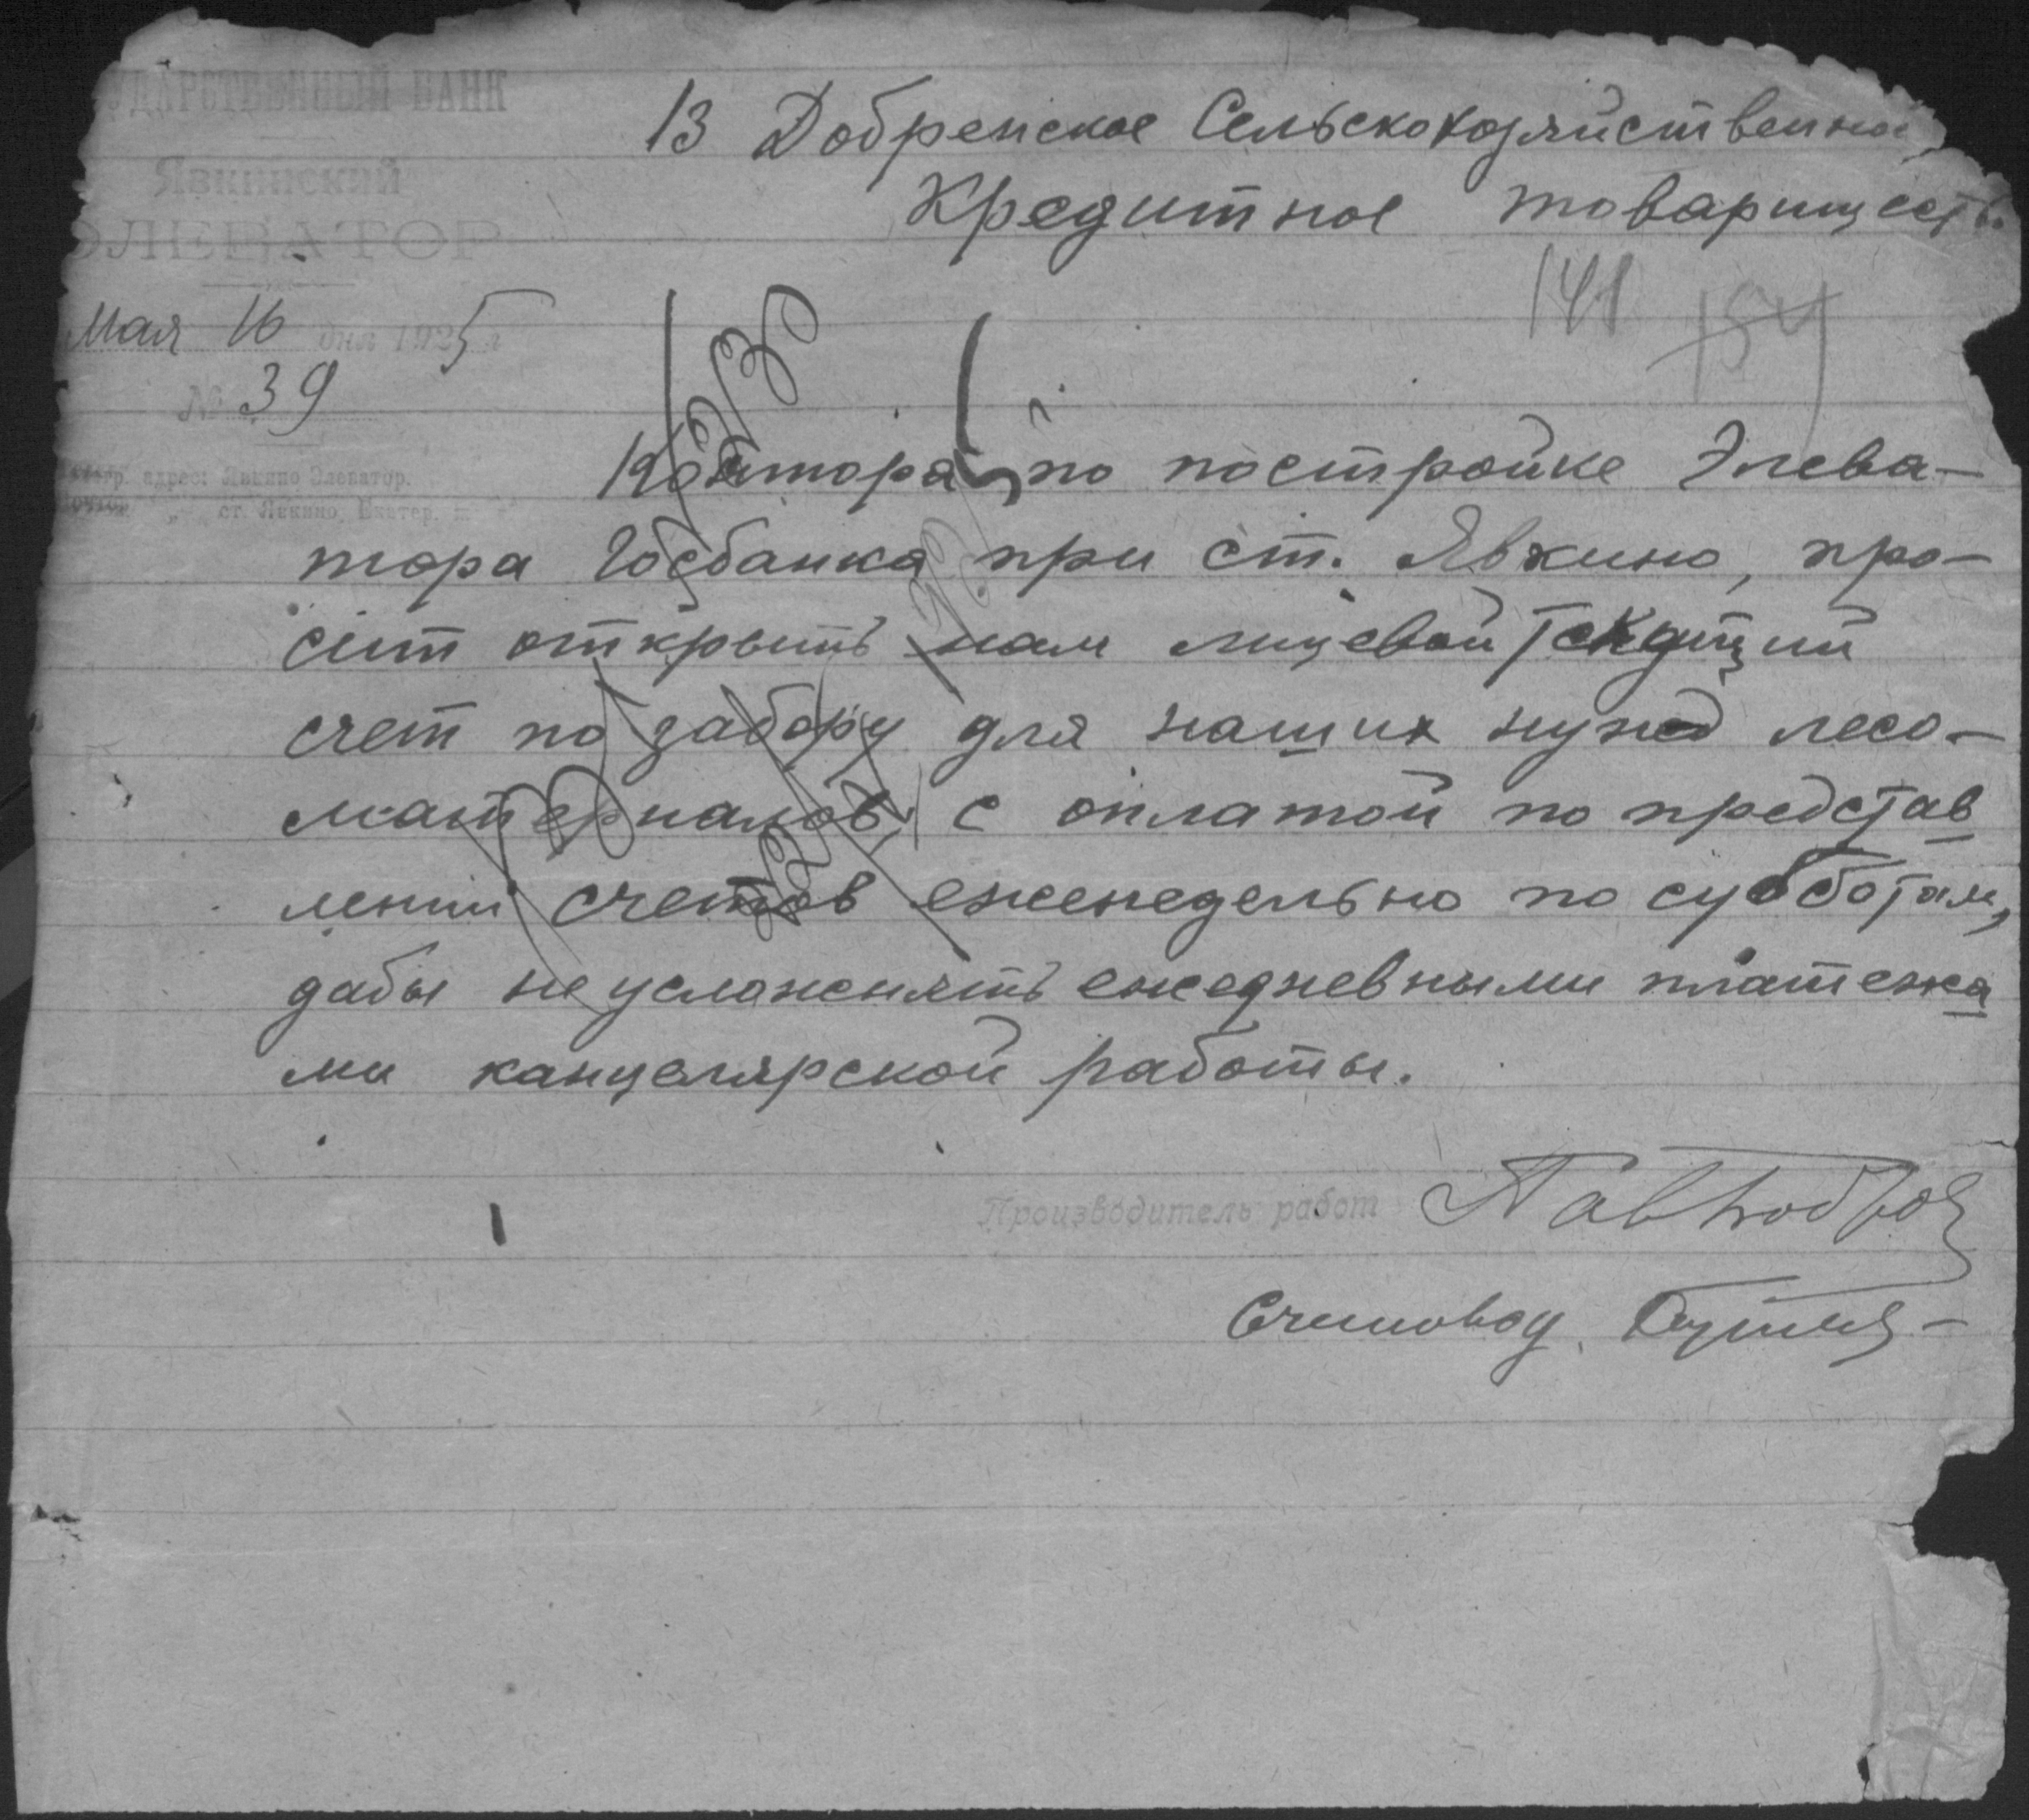 УДАРСТВЕННЫЙ БАНК
Явкинский
ЭЛЕВАТОР
Мая 16 дня 1925 г
№ 39
адрес: Явкино Элеватор.
„ ст. Явкино, Екатер. ж.
В Добренское Сельскохозяйственное
Кредитное товариществ.
141 154
Контора по постройке Элева-
тора Госбанка при ст. Явкино, про-
сит открыть нам лицевой текущий
счет по забору для наших нужд лесо-
материалов с оплатой по представ
лении счетов еженедельно по субботам,
дабы не усложнять ежедневными платежа
ми канцелярской работы.
Производитель работ
Счетовод